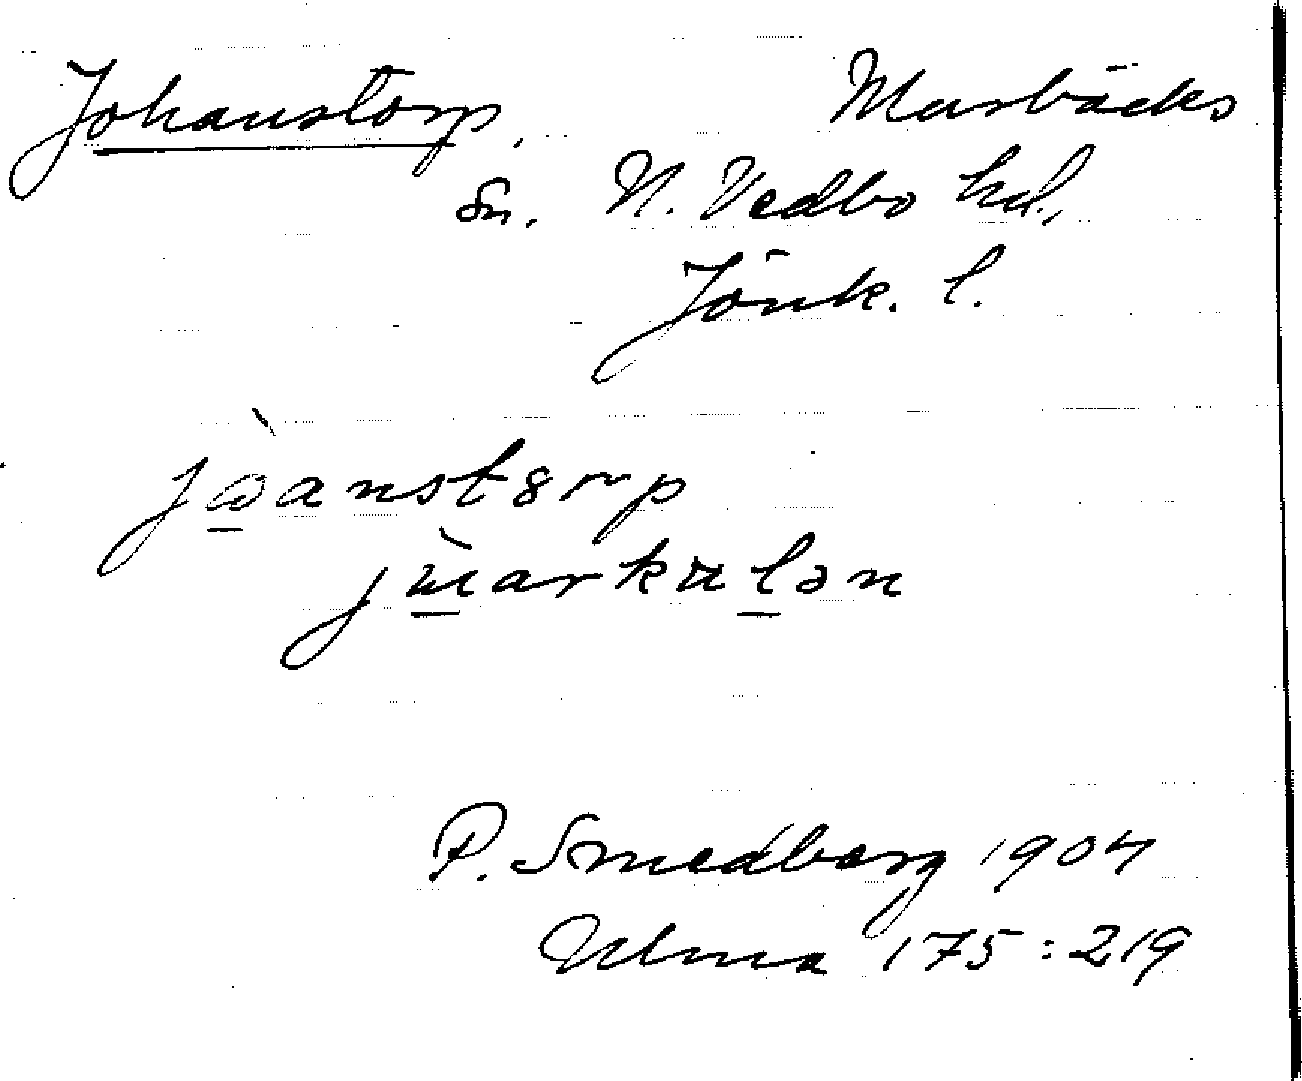 Johanstorp, Marbäcks
Sn. N. Vedbo hd.,
Jönk. l.
P. Smedberg 1904
Ulma 175:219